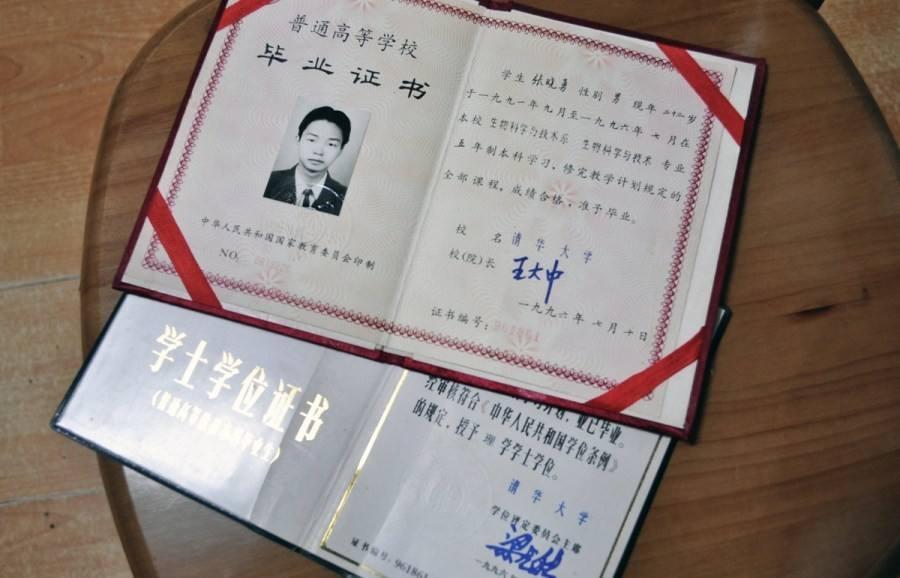 普通高等学校
毕业证书
中华人民共和国国家教育委员会印制
NO.
学生 张晓勇 性别 男 现年 二十二 岁
于一九九一年九月至一九九六年 七月在
本校 生物科学与技术系 生物科学与技术 专业
五 年制本科学习,修完教学计划规定的
全部课程,成绩合格,准予毕业。
校 名 清华大学
校(院)长 王大中
一九九六年 七月十日
证书编号: 961861
学士学位证书
业已毕业。
经审核符合《中华人民共和国学位条例》
的规定,授予 理 学学士学位。
清华大学
学位评定委员会主席
一九九六年
证书编号: 961861